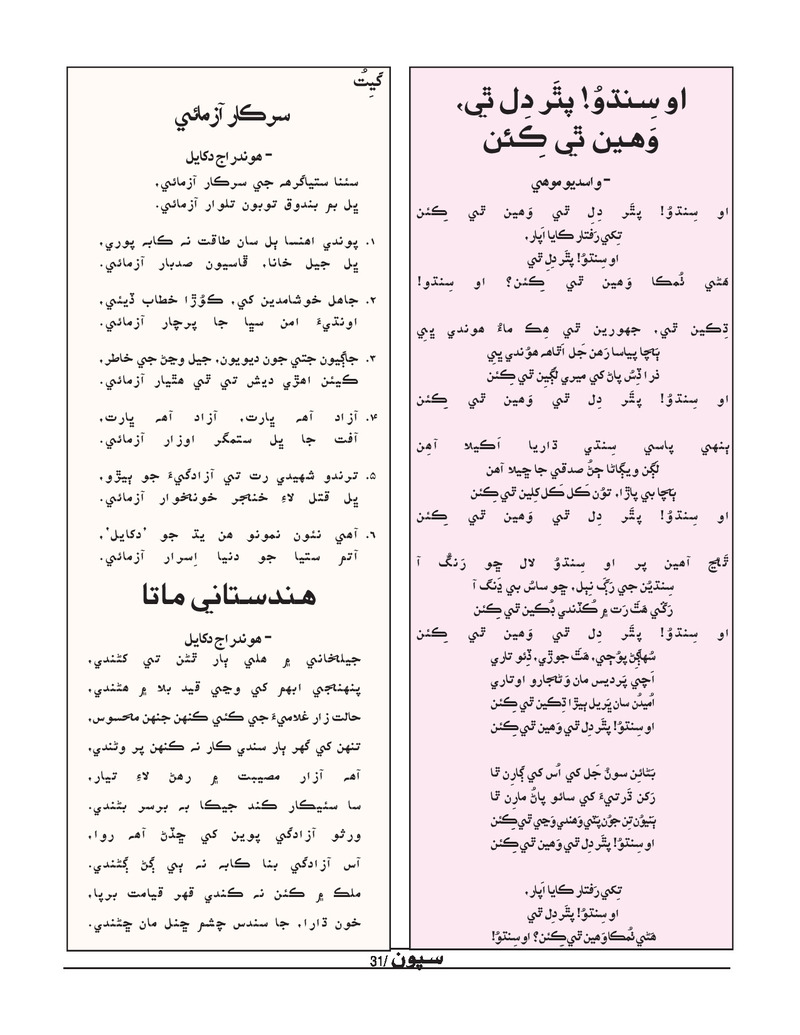 او سِنڌوُ! پٿَر دِل ٿي،
وَهين ٿي ڪِئن
- واسديو موهي
او سِنڌوُ! پٿَر دِل ٿي وَهين ٿي ڪِئن
تِکي رَفتار ڪايا اَپار،
او سِنڌوُ! پٿَر دِل ٿي
هَڻي ٺُمڪا وَهين ٿي ڪِئن؟ او سِنڌو!
ڊِڪين ٿي، جهورين ٿي هِڪ ماءُ هوندي ڀِي
ٻَچا پياسا رَهن جَل اَٿاهہ هوُندي ڀِي
ذرا ڏِسُ پاڻ کي ميري لڳين ٿي ڪِئن
او سِنڌوُ! پٿَر دِل ٿي وَهين ٿي ڪِئن
ٻنهي پاسي سِنڌي ڌاريا اَڪيلا آهِن
لَڳن ويڳاڻا ڄڻُ صدقي جا ڇيلا آهن
ٻَچا بي پاڙا، توُن ڪَل ڪَل ڪِلين ٿي ڪِئن
او سِنڌوُ! پٿَر دِل ٿي وَهين ٿي ڪِئن
آهين پر او سِنڌوُ لال ڇو رَنگُ آ
سِنڌيُن جي رَڳَ نِيل، ڇو ساسُ بي ڍَنگ آ
رَڱي هَٿَ رَت ۾ ڪُڏندي ٻُڪين ٿي ڪِئن
او سِنڌوُ! پٿَر دِل ٿي وَهين ٿي ڪِئن
سُهاڳِڻ پوُڄي، هَٿَ جوڙي، ڏِئو تاري
اَچي پَرديس مان وَڻجارو اوتاري
اُميدُن سان ڀَريل ٻيڙا ڊِڪين ٿي ڪِئن
او سِنڌوُ! پٿَر دِل ٿي وَهين ٿي ڪِئن
بَڻائِن سونُ جَل کي اُس کي ڳارِن ٿا
رَکن ڌَرتيءَ کي سائو پاڻُ مارِن ٿا
ٻَنيوُن تِن جوُن پَٽي وَهندي وَڃي ٿي ڪِئن
او سِنڌوُ! پٿَر دِل ٿي وَهين ٿي ڪِئن
تِکي رَفتار ڪايا اَپار،
او سِنڌوُ! پٿَر دِل ٿي
هَڻي ٺُمڪا وَهين ٿي ڪِئن؟ او سِنڌوُ!
گيِتُ
سرڪار آزمائي
- هوندراج دکايل
سئنا ستياگرهہ جي سرڪار آزمائي،
ڀل بم بندوق توبون تلوار آزمائي.
۱. پوندي اهنسا ٻل سان طاقت نہ ڪابہ پوري،
ڀل جيل خانا، ڦاسيون صدبار آزمائي.
۲. جاهل خوشامدين کي، ڪوُڙا خطاب ڏيئي،
اونڌيءَ امن سڀا جا پرچار آزمائي.
۳. جاڳيون جتي جون ديويون، جيل وڃڻ جي خاطر،
ڪيئن اهڙي ديش تي ٿي هٿيار آزمائي.
۴. آزاد آهہ ڀارت، آزاد آهہ ڀارت،
آفت جا ڀل ستمگر اوزار آزمائي.
۵. ترندو شهيدي رت تي آزادگيءَ جو ٻيڙو،
ڀل قتل لاءِ خنجر خونخوار آزمائي.
۶. آهي نئون نمونو هن يڌ جو ’دکايل‘،
آتم ستيا جو دنيا اِسرار آزمائي.
هندستاني ماتا
- هوندراج دکايل
جيلخاني ۾ هلي ٻار ٿڻن تي ڪٽندي،
پنهنجي ابهم کي وجهي قيد بلا ۾ هٽندي،
حالت زار غلاميءَ جي ڪئي ڪنهن جنهن محسوس،
تنهن کي گهر ٻار سندي ڪار نہ ڪنهن پر وڻندي،
آهہ آزار مصيبت ۾ رهڻ لاءِ تيار،
سا سئيڪار ڪندِ جيڪا بہ برسر بڻندي.
ورثو آزادگي پوين کي ڇڏڻ آهہ روا،
آس آزادگي بنا ڪابہ نہ ٻي ڳڻ ڳڻندي.
ملڪ ۾ ڪئن نہ ڪندي قهر قيامت برپا،
خون ڌارا، جا سندس چشم ڇنل مان ڇڻندي.
سپون /31